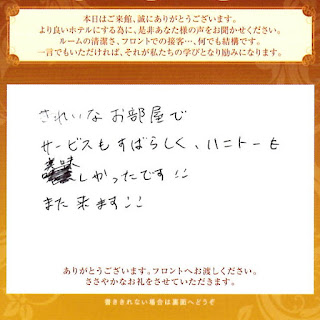 本日はご来館、誠にありがとうございます。
より良いホテルにする為に、是非あなた様の声をお聞かせください。
ルームの清潔さ、フロントでの接客…、何でも結構です。
一言でもいただければ、それが私たちの学びとなり励みになります。
きれいなお部屋で
サービスもすばらしく、ハニトーも
美味しかったです!!
また来ます!!
ありがとうございます。フロントへお渡しください。
ささやかなお礼をさせていただきます。
書ききれない場合は裏面へどうぞ